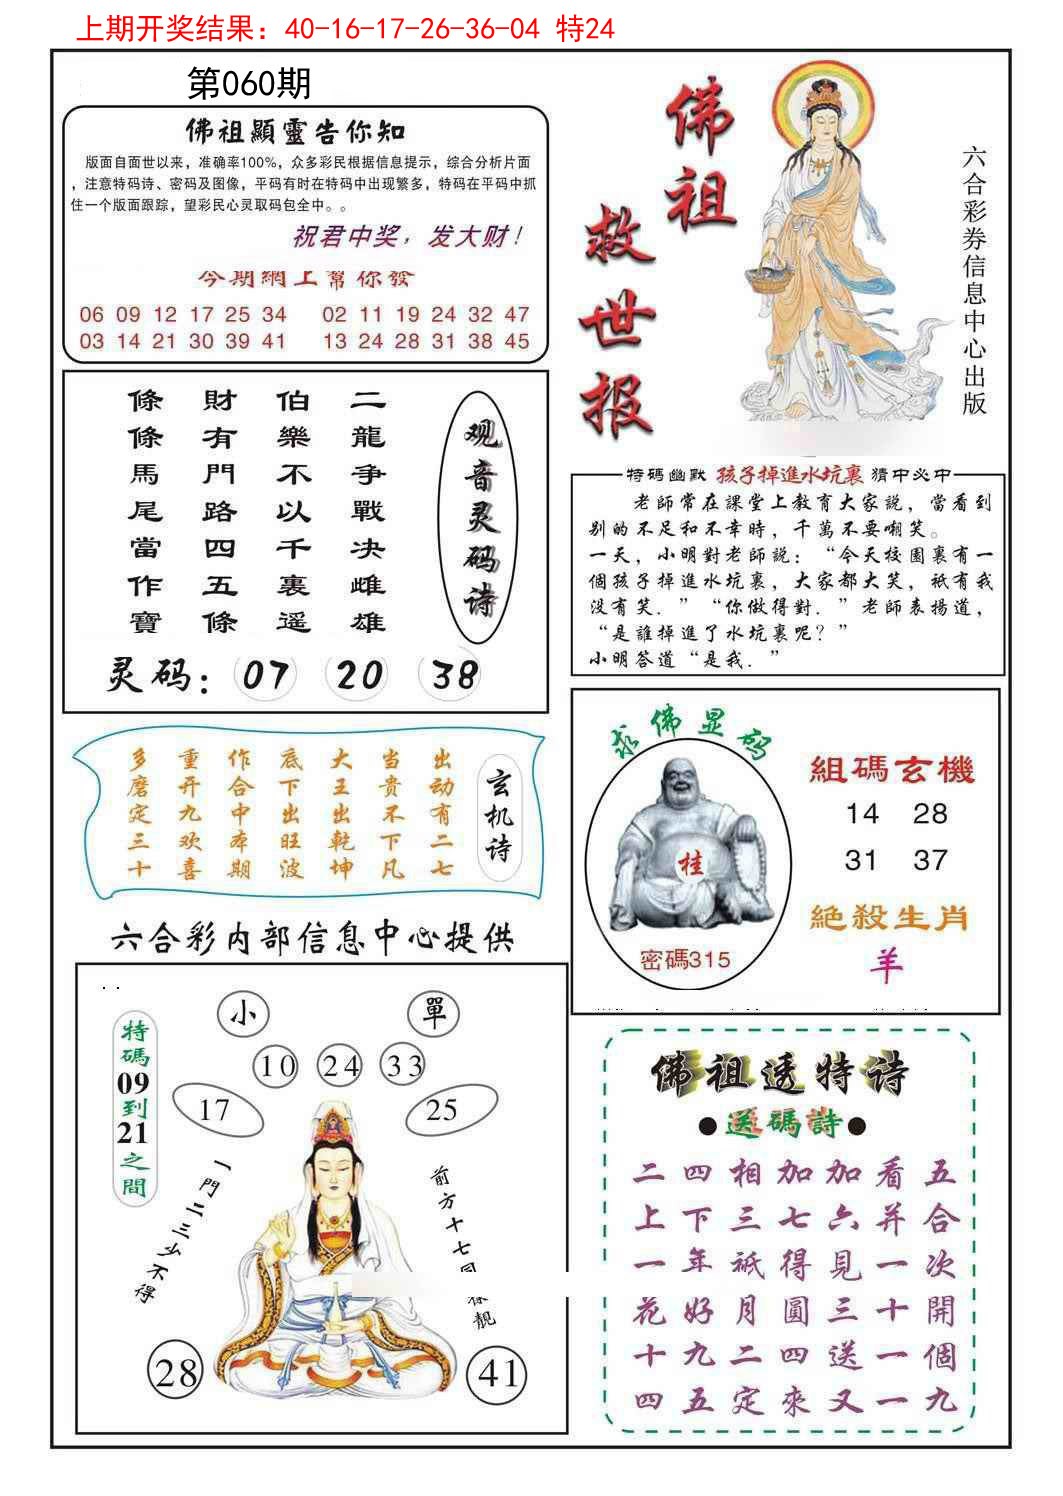 上期开奖结果：40-16-17-26-36-04 特24
第060期
佛祖顯靈告你知
版面自面世以来，准确率100%，众多彩民根据信息提示，综合分析片面
，注意特码诗、密码及图像，平码有时在特码中出现繁多，特码在平码中抓
住一个版面跟踪，望彩民心灵取码包全中。。
祝君中奖，发大财！
今期網上幫你發
06 09 12 17 25 34 02 11 19 24 32 47
03 14 21 30 39 41 13 24 28 31 38 45
佛祖
救世报
六合彩券信息中心出版
观音灵码诗
二龍争戰决雌雄
伯樂不以千裏遥
財有門路四五條
條條馬尾當作寶
灵码：07 20 38
特碼幽默 孩子掉進水坑裏 猜中必中
老師常在課堂上教育大家説，當看到
别的不足和不幸時，千萬不要嘲笑。
一天，小明對老師説：“今天校園裏有一
個孩子掉進水坑裏，大家都大笑，祇有我
没有笑．”“你做得對．”老師表揚道，
“是誰掉進了水坑裏呢？”
小明答道“是我．”
玄机诗
出动有二七
当贵不下凡
大王出乾坤
底下出旺波
作合中本期
重开九欢喜
多磨定三十
求佛显码
桂
密碼315
組碼玄機
14 28
31 37
絕殺生肖
羊
六合彩内部信息中心提供
小 單
10 24 33
17 25
特碼09到21之間
一門二三少不得
前方十七同
靓
28 41
佛祖透特诗
●送碼詩●
二四相加加看五
上下三七六并合
一年祇得見一次
花好月圓三十開
十九二四送一個
四五定來又一九